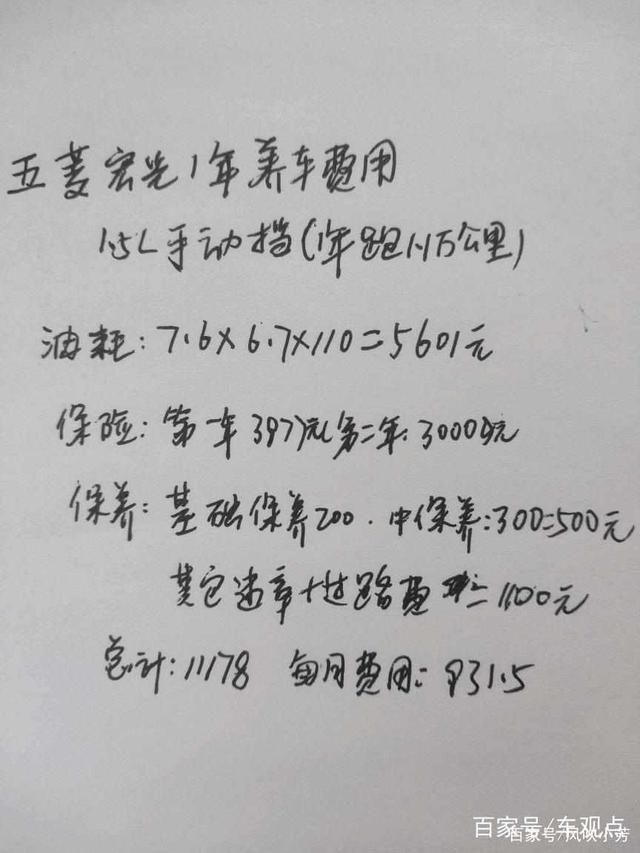 五菱宏光1年养车费用
1.5L手动挡(1年跑1.1万公里)
油耗:7.6×6.7×110=5601元
保险:第一年3977元(第二年:3000多元
保养:基础保养200.中保养:300=500元
其它违章+过路费 1100元
总计:11178 每月费用:931.5
百家号/车观点
百家号/风吹小芳